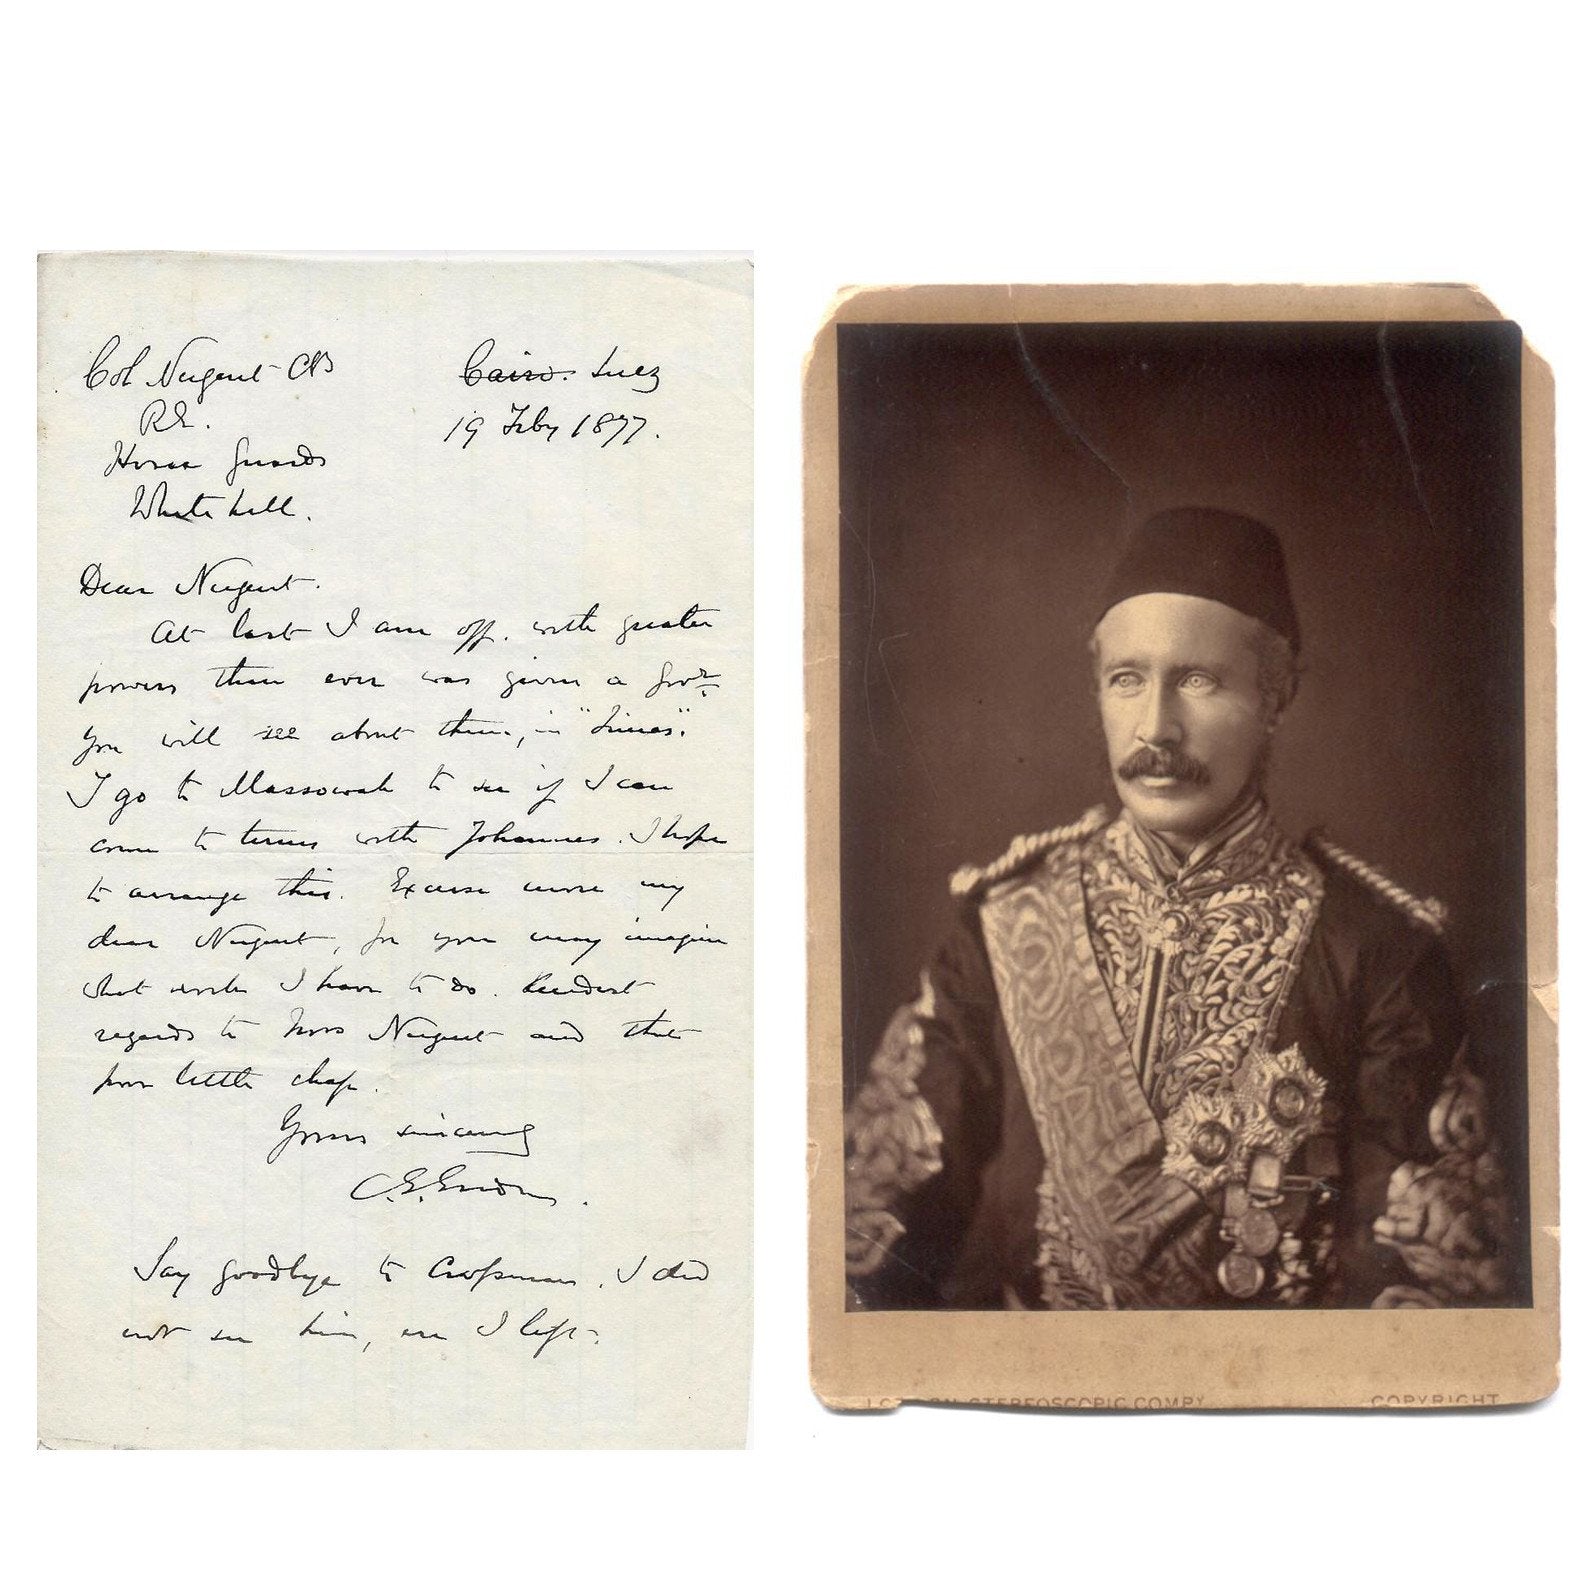 Col Nugent CB
R.E.
Horse Guards
Whitehall.
Cairo. Suez
19 Feby 1877.
Dear Nugent.
At last I am off. with greater
powers than ever was given a Govr.
You will see about them, in "Times".
I go to Massowah to see if I can
come to terms with Johannes. I hope
to arrange this. Excuse more my
dear Nugent, for you may imagine
what work I have to do. Kindest
regards to Mrs Nugent and that
poor little chap.
Yours sincerely
C.G.Gordon.
Say goodbye to Crossman. I did
not see him, ere I left.
LONDON STEREOSCOPIC COMPY
COPYRIGHT